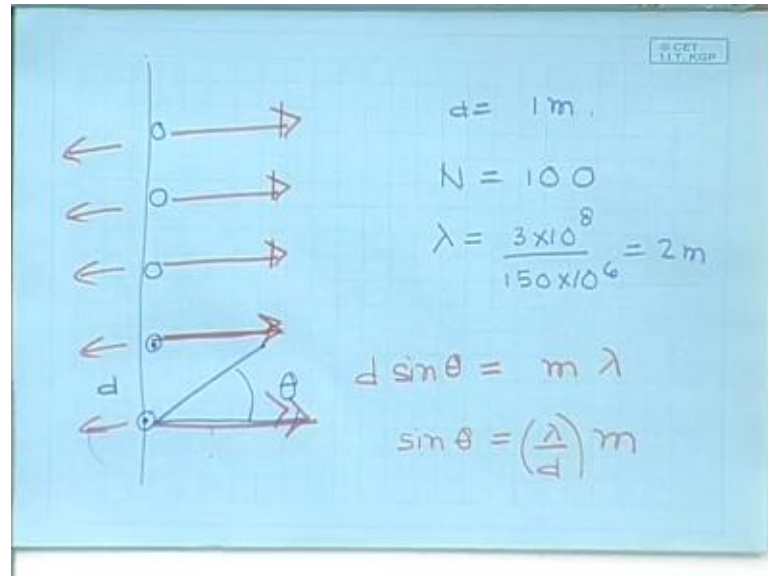 © CET
I.I.T. KGP
d = 1 m.
N = 100
λ = 3×10⁸ / 150×10⁶ = 2 m
d
θ
d sin θ = m λ
sin θ = (λ/d) m